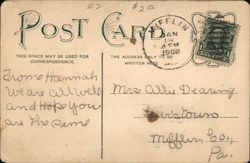 #2 #20
POST CARD
MIFFLIN
JAN
18
PM
1908
THIS SPACE MAY BE USED FOR
CORRESPONDENCE.
THE ADDRESS ONLY TO BE
WRITTEN HERE
From Hannah
We are all well
and Hope you
are the Same
Mrs Allie Dearing
Mifflin Co.,
Pa.